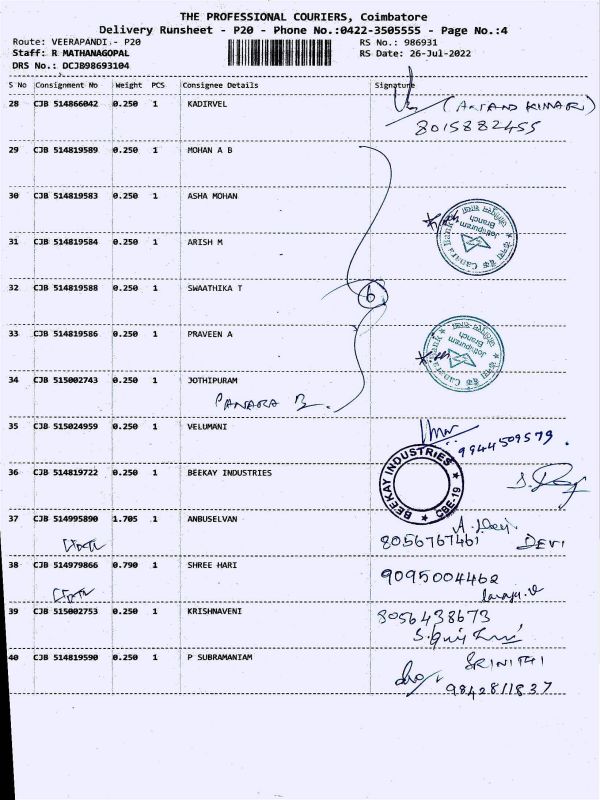 THE PROFESSIONAL COURIERS, Coimbatore
Delivery Runsheet - P20 - Phone No.:0422-3505555 - Page No.:4
Route: VEERAPANDI.- P20 RS No.: 986931
Staff: R MATHANAGOPAL RS Date: 26-Jul-2022
DRS No.: DCJB98693104
S No Consignment No Weight PCS Consignee Details Signature
28 CJB 514866042 0.250 1 KADIRVEL (ANAND KUMAR)
8015882455
29 CJB 514819589 0.250 1 MOHAN A B
30 CJB 514819583 0.250 1 ASHA MOHAN
Canara Bank
Jothipuram
Branch
31 CJB 514819584 0.250 1 ARISH M
32 CJB 514819588 0.250 1 SWAATHIKA T
6
33 CJB 514819586 0.250 1 PRAVEEN A
Canara Bank
Jothipuram
Branch
34 CJB 515002743 0.250 1 JOTHIPURAM
35 CJB 515024959 0.250 1 VELUMANI
9944509579.
36 CJB 514819722 0.250 1 BEEKAY INDUSTRIES
BEEKAY INDUSTRIES
★ CBE-19 ★
37 CJB 514995890 1.705 1 ANBUSELVAN
8056767461 DEVI
38 CJB 514979866 0.790 1 SHREE HARI
9095004462
39 CJB 515002753 0.250 1 KRISHNAVENI
8056438673
40 CJB 514819590 0.250 1 P SUBRAMANIAM
SRINITHI
9842811837